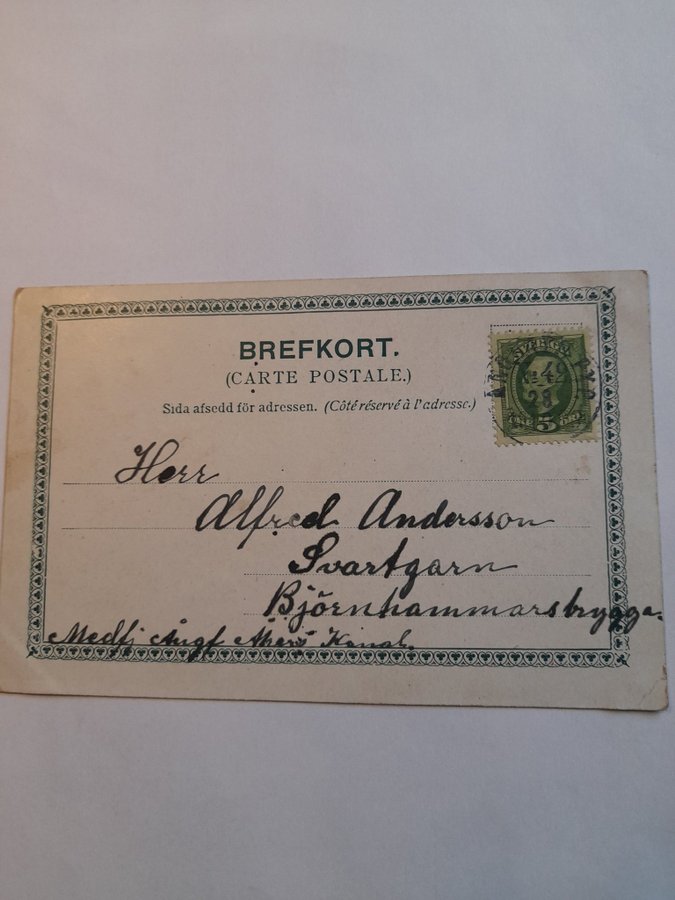 BREFKORT.
(CARTE POSTALE.)
Sida afsedd för adressen. (Côté réservé à l'adresse.)
SVERIGE
5
Herr
Alfred Andersson
Svartgarn
Björnhammarsbrygga.
Medfj Ångf Åkers Kanal.